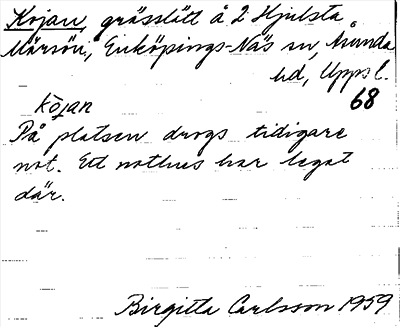 Kojan, grässlätt å 2 Hjulsta
Mårsön, Enköpings-Näs sn, Åsunda
hd, Uppsl.
68
kò̀jan
På platsen drogs tidigare
not. Ett nothus har legat
där.
Birgitta Carlsson 1959